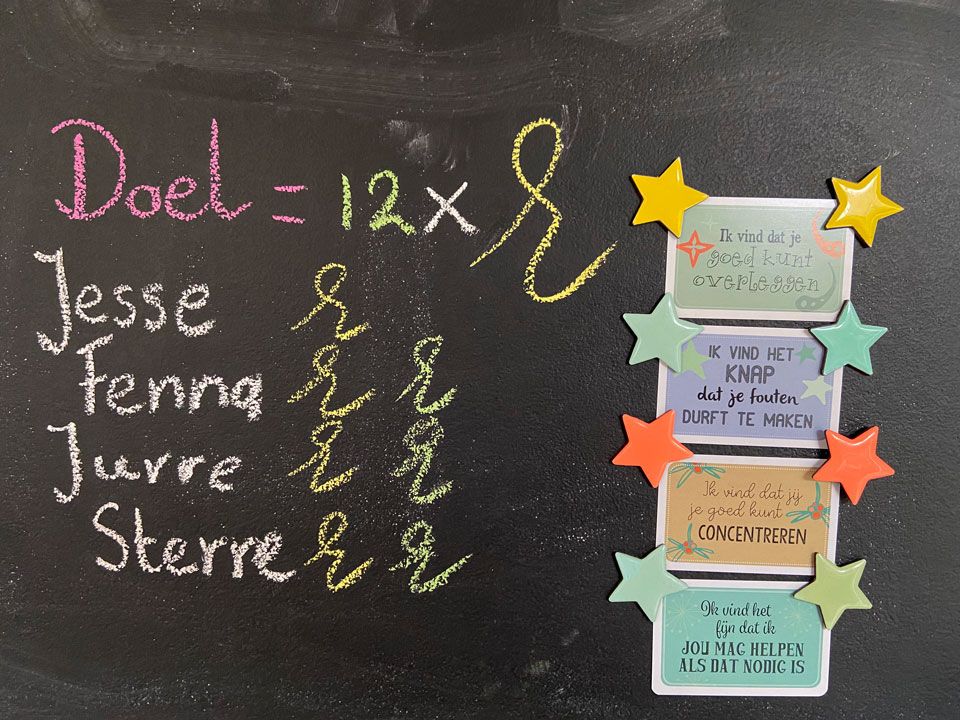 Doel = 12 x
Jesse
Fenna
Jurre
Sterre
Ik vind dat je
goed kunt
overleggen
IK VIND HET
KNAP
dat je fouten
DURFT TE MAKEN
Ik vind dat jij
je goed kunt
CONCENTREREN
Ik vind het
fijn dat ik
JOU MAG HELPEN
ALS DAT NODIG IS